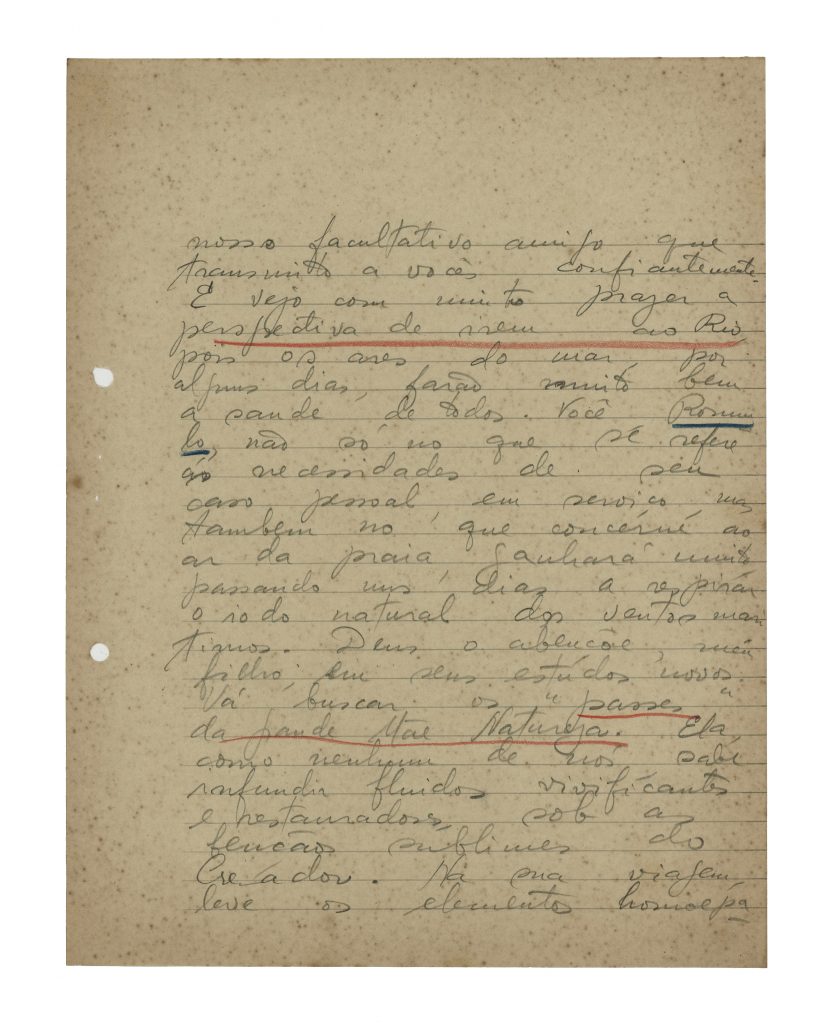 nosso facultativo amigo que
transmitto a vocês confiantemente.
E vejo com muito prazer a
perspectiva de irem ao Rio,
pois os ares do mar, por
alguns dias, farão muito bem
a saude de todos. Você Romu
lo, não só no que se refere
ás necessidades de seu
caso pessoal, em serviço, mas
tambem no que concerne ao
ar da praia, ganhará muito
passando uns dias a respirar
o iodo natural dos ventos mari
timos. Deus o abençôe, meu
filho, em seus estudos novos.
Vá buscar os "passes"
da grande Mãe Natureza. Ela,
como nenhum de nós sabe
infundir fluidos vivificantes
e restauradores, sob as
bençãos sublimes do
Creador. Na sua viagem,
leve os elementos homœpa